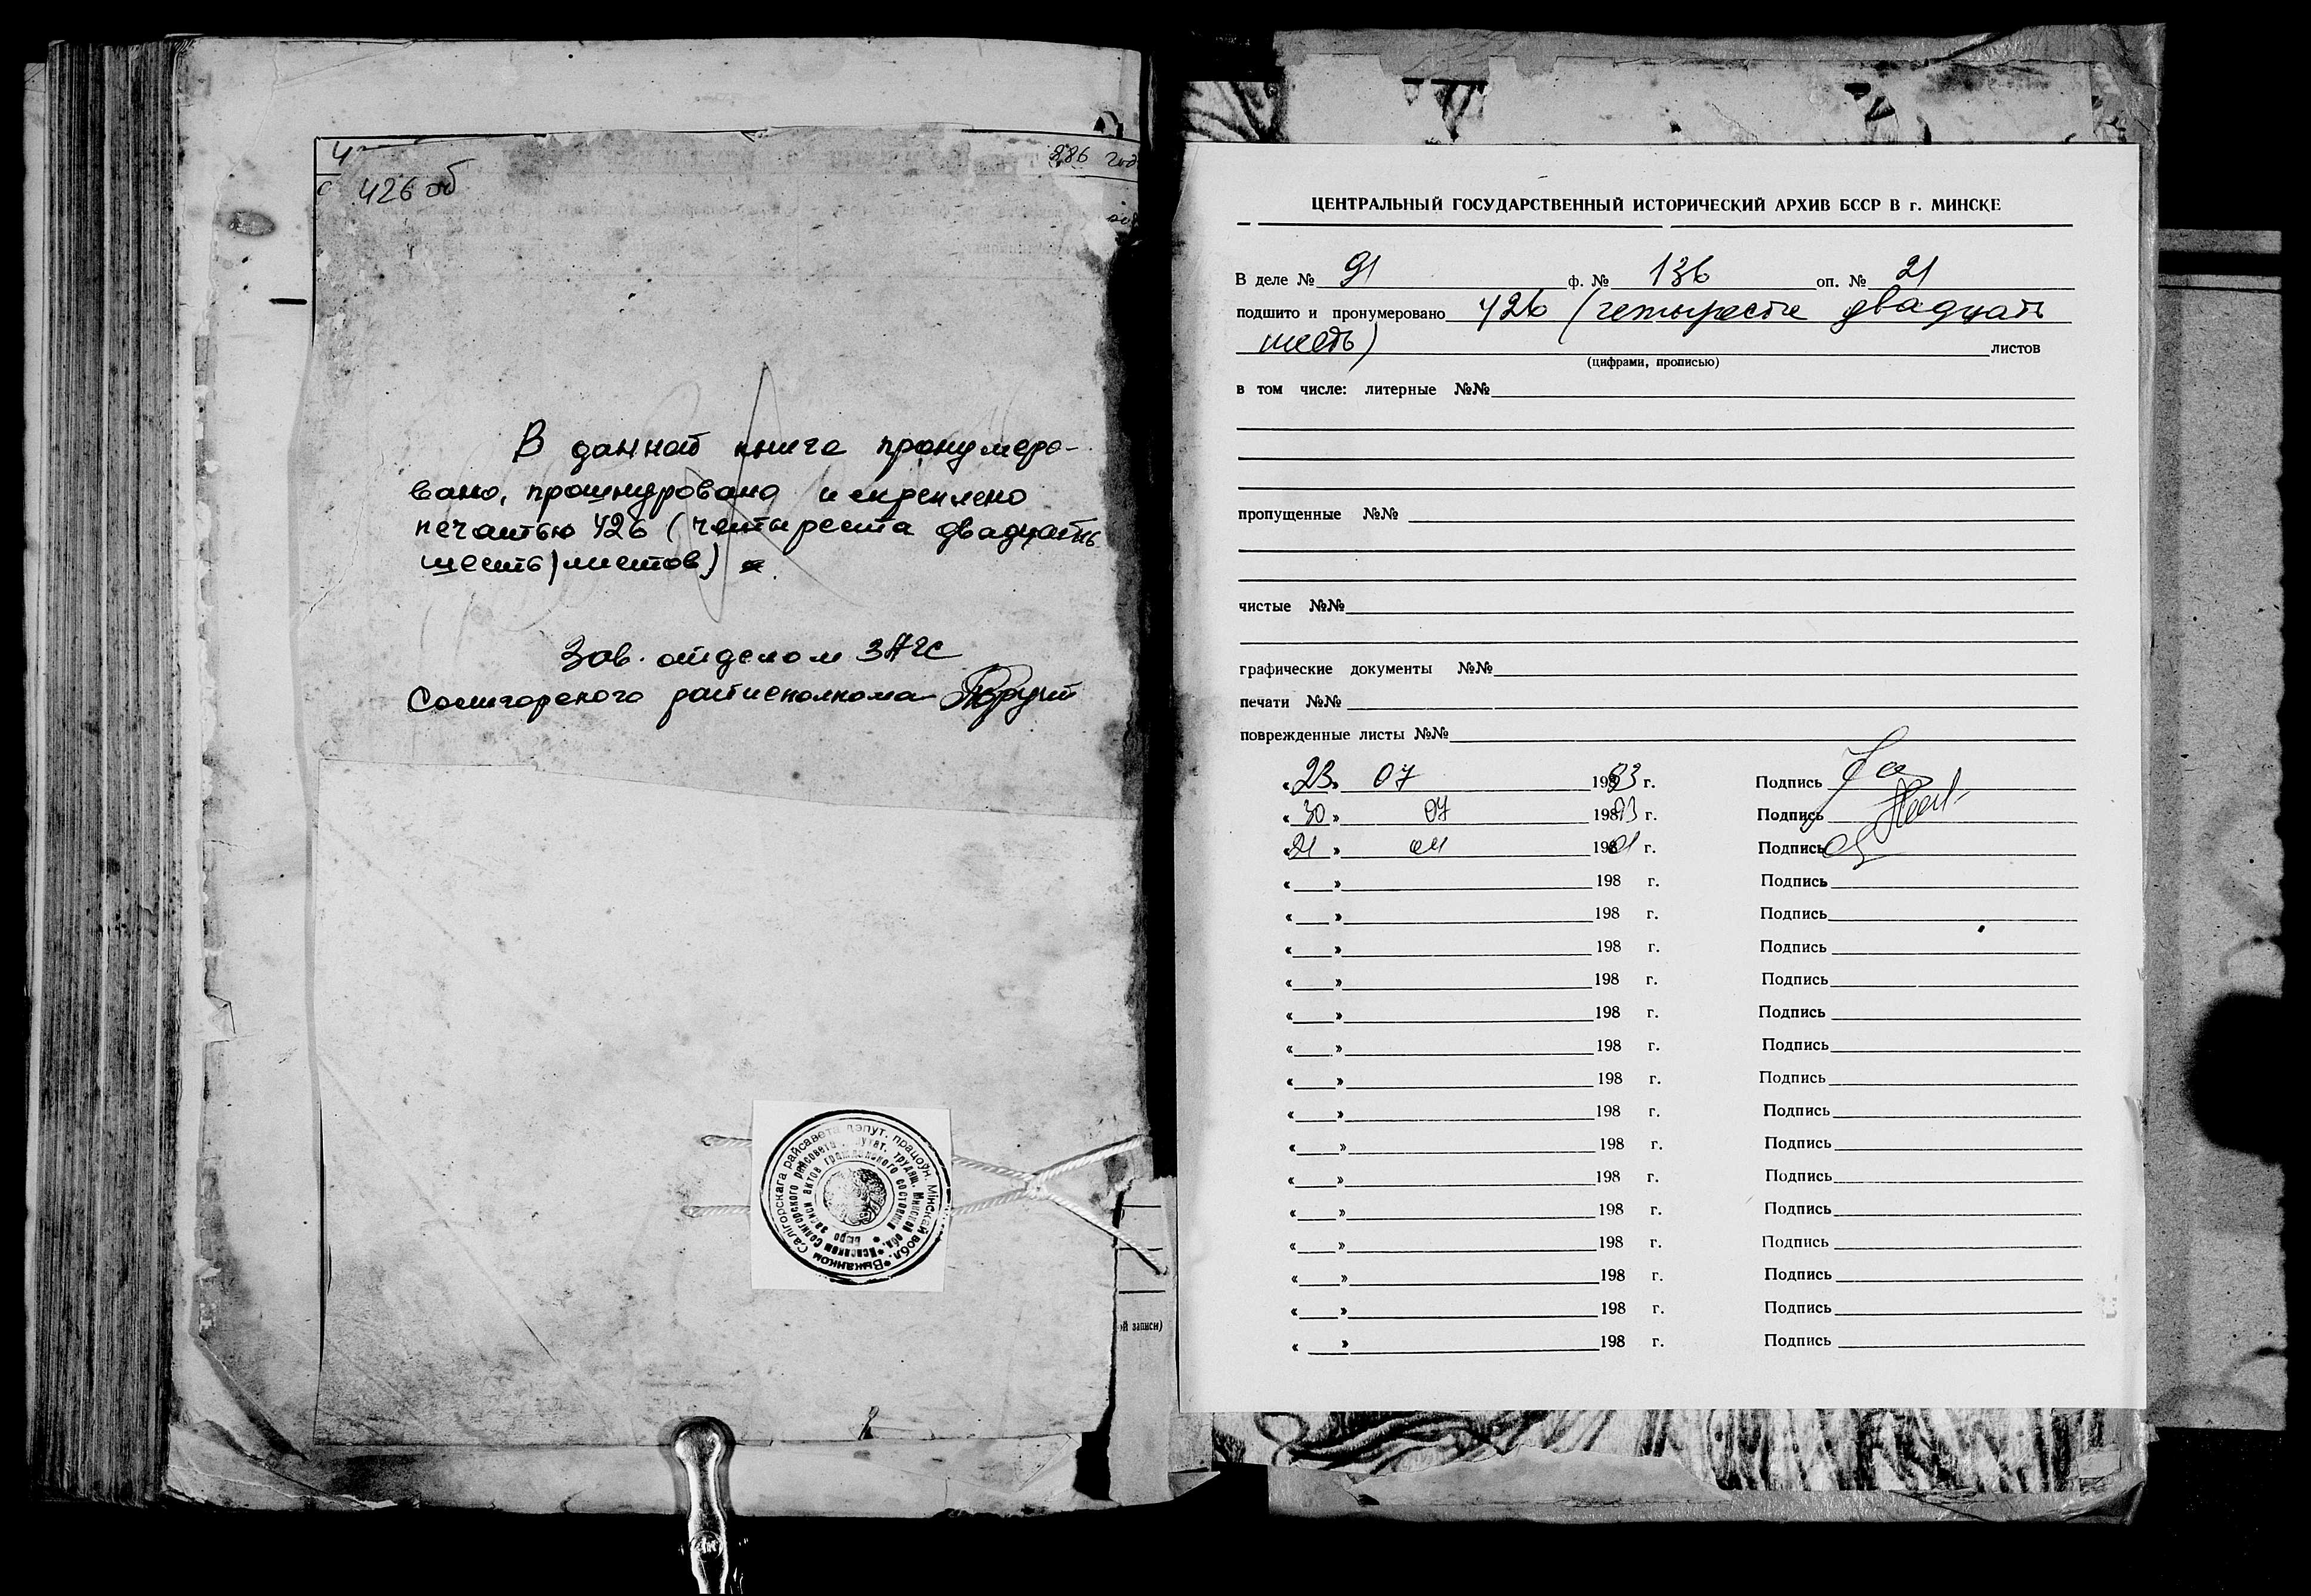 426 об
286 год
В данной книге пронумеро-
вано, прошнуровано и скреплено
печатью 426 (четыреста двадцать
шесть) листов)
Зав. отделом ЗАГС
Солигорского райисполкома
Выканком Салігорскага райсавета дэпут. працоўн. Мінскай вобл.
Исполком Солигорского райсовета депутат. трудящ. Минской обл.
Бюро записи актов гражданского состояния
ой записи)
ЦЕНТРАЛЬНЫЙ ГОСУДАРСТВЕННЫЙ ИСТОРИЧЕСКИЙ АРХИВ БССР В г. МИНСКЕ
В деле № 91 ф. № 136 оп. № 21
подшито и пронумеровано 426 (четыреста двадцать
шесть) листов
(цифрами, прописью)
в том числе: литерные №№
пропущенные №№
чистые №№
графические документы №№
печати №№
поврежденные листы №№
«23» 07 1993 г. Подпись
«30» 07 19893 г. Подпись
«21» 04 01 г. Подпись
« » 198 г. Подпись
« » 198 г. Подпись
« » 198 г. Подпись
« » 198 г. Подпись
« » 198 г. Подпись
« » 198 г. Подпись
« » 198 г. Подпись
« » 198 г. Подпись
« » 198 г. Подпись
« » 198 г. Подпись
« » 198 г. Подпись
« » 198 г. Подпись
« » 198 г. Подпись
« » 198 г. Подпись
« » 198 г. Подпись